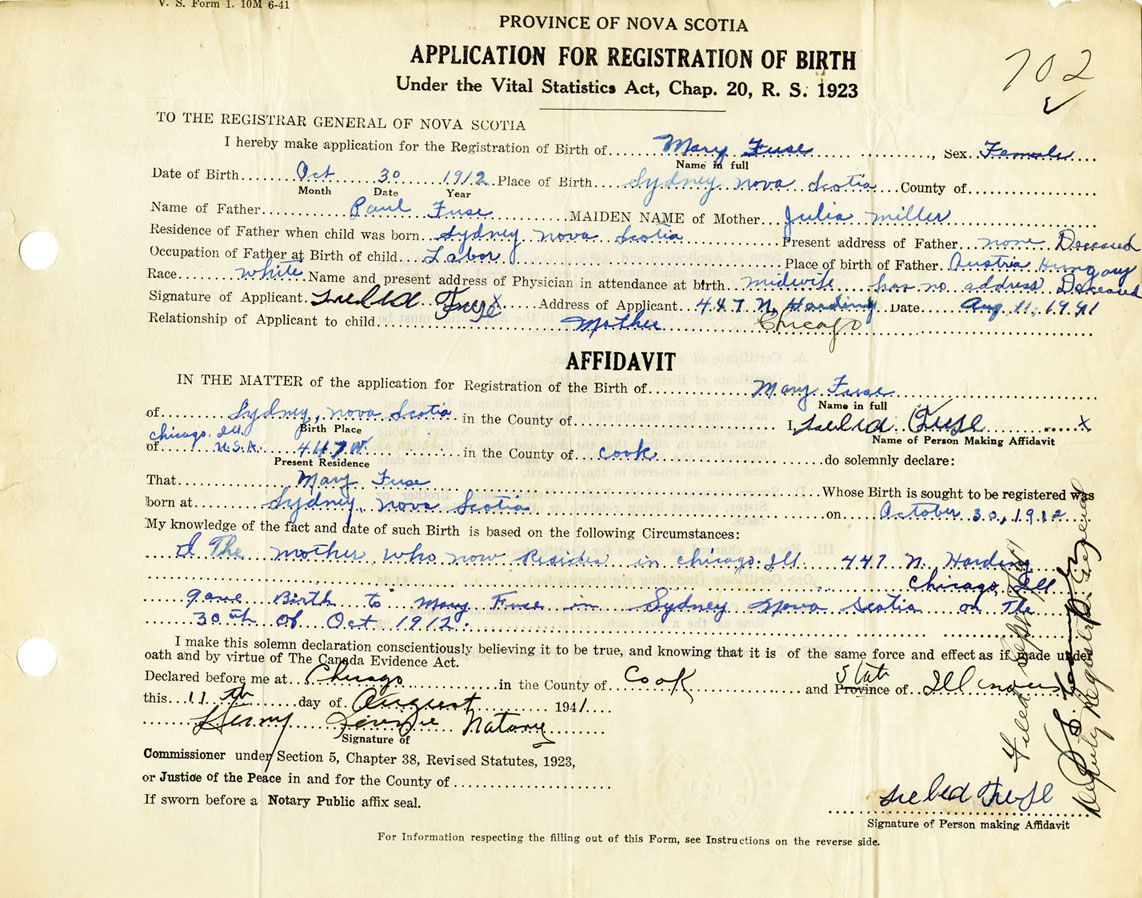 V. S. Form 1. 10M 6-41
PROVINCE OF NOVA SCOTIA
APPLICATION FOR REGISTRATION OF BIRTH
Under the Vital Statistics Act, Chap. 20, R. S. 1923
702
TO THE REGISTRAR GENERAL OF NOVA SCOTIA
I hereby make application for the Registration of Birth of Mary Fuse, Sex Female
Name in full
Date of Birth Oct 30 1912 Place of Birth Sydney Nova Scotia County of
Month Date Year
Name of Father Paul Fuse MAIDEN NAME of Mother Julia Miller
Residence of Father when child was born Sydney Nova Scotia Present address of Father none Deceased
Occupation of Father at Birth of child Labor Place of birth of Father Austria Hungary
Race white Name and present address of Physician in attendance at birth midwife has no address Deceased
Signature of Applicant x Address of Applicant 447 N. Harding Date Aug. 11, 1941
Relationship of Applicant to child Mother Chicago
AFFIDAVIT
IN THE MATTER of the application for Registration of the Birth of Mary Fuse
Name in full
of Sydney, Nova Scotia in the County of I, x
Chicago. Ill. Birth Place Name of Person Making Affidavit
of U.S.A. 447 N in the County of Cook do solemnly declare:
Present Residence
That Mary Fuse Whose Birth is sought to be registered was
born at Sydney, Nova Scotia on October 30, 1912
My knowledge of the fact and date of such Birth is based on the following Circumstances:
I The mother who now Resides in Chicago. Ill 447 N. Harding
Chicago, Ill
gave Birth to Mary Fuse in Sydney Nova Scotia on The
30th of Oct 1912.
I make this solemn declaration conscientiously believing it to be true, and knowing that it is of the same force and effect as if made under
oath and by virtue of The Canada Evidence Act.
Declared before me at Chicago in the County of Cook and Province of State Illinois
this 11th day of August 1941
Notary
Signature of
Commissioner under Section 5, Chapter 38, Revised Statutes, 1923,
or Justice of the Peace in and for the County of
If sworn before a Notary Public affix seal.
Signature of Person making Affidavit
For Information respecting the filling out of this Form, see Instructions on the reverse side.
Filed Sept
Deputy Registrar General